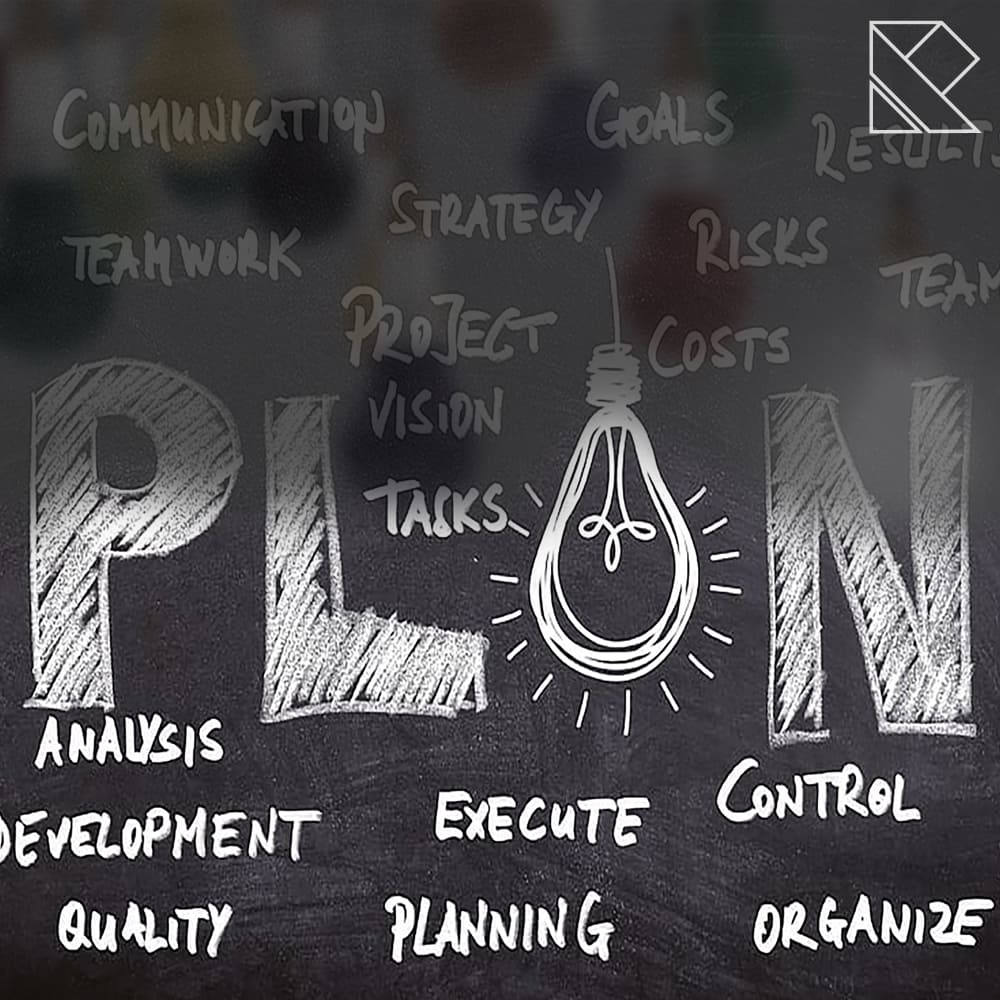 COMMUNICATION GOALS
RESULTS
STRATEGY
TEAMWORK RISKS
TEAM
PROJECT
COSTS
VISION
TASKS
PL N
ANALYSIS
CONTROL
DEVELOPMENT EXECUTE
QUALITY PLANNING ORGANIZE